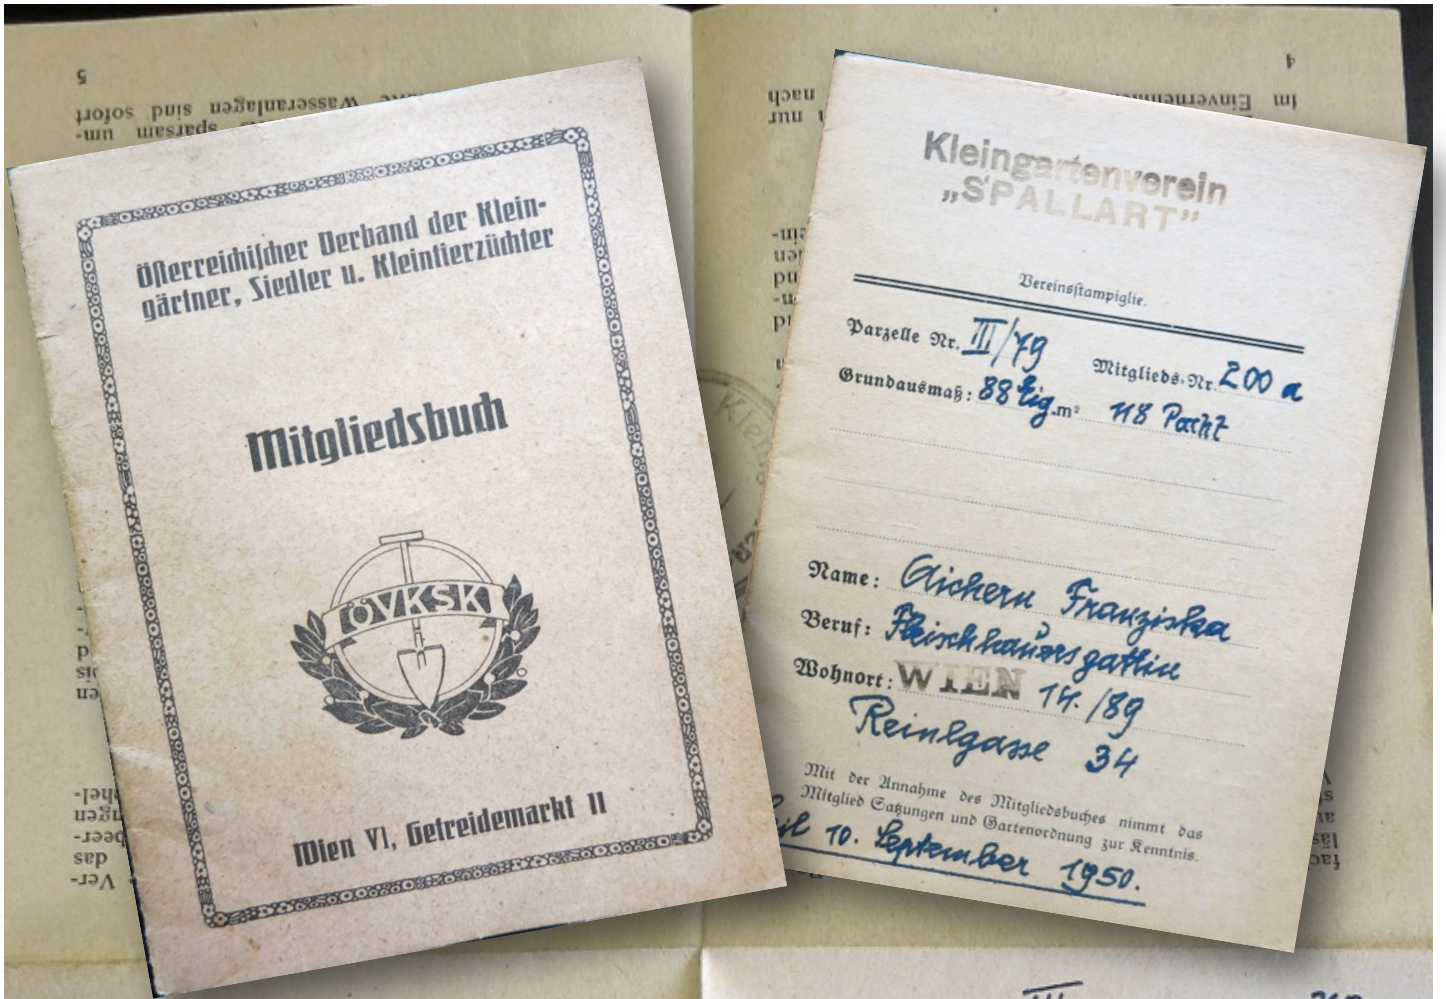 Österreichischer Verband der Klein-
gärtner, Siedler u. Kleintierzüchter
Mitgliedsbuch
ÖVKSK
Wien VI, Getreidemarkt 11
Kleingartenverein
„SPALLART”
Vereinsstampiglie.
Parzelle Nr. III/79 Mitglieds-Nr. 200 a
Grundausmaß: 88 Eig. m² 118 Pacht
Name: Aichern Franziska
Beruf: Fleischhauersgattin
Wohnort: WIEN 14./89
Reinlgasse 34
Mit der Annahme des Mitgliedsbuches nimmt das
Mitglied Satzungen und Gartenordnung zur Kenntnis.
10. September 1950.
5
Wasseranlagen sind sofort
sparsam um-
4
im Einvernehmen nach
nur